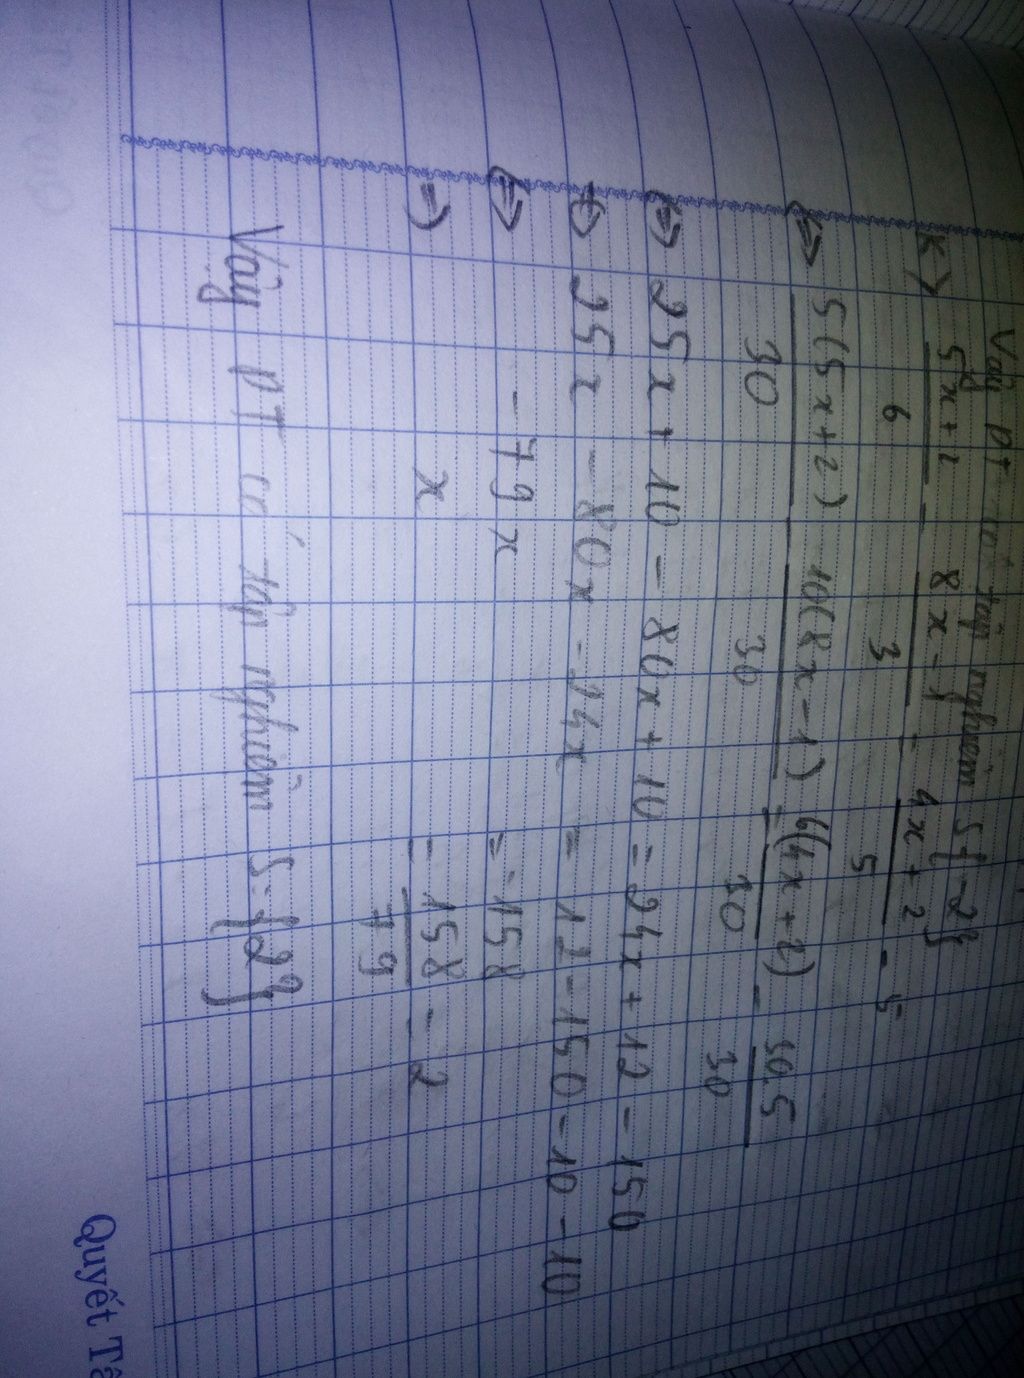 Vậy pt có tập nghiệm S{-2}
k) 5x+2/6 - 8x-1/3 = 4x+2/5 - 5
<=> 5(5x+2)/30 - 10(8x-1)/30 = 6(4x+2)/30 - 30.5/30
<=> 25x + 10 - 80x + 10 = 24x + 12 - 150
<=> 25x - 80x - 24x = 12 - 150 - 10 - 10
<=> -79x = -158
=> x = 158/79 = 2
Vậy pt có tập nghiệm S={2}
Quyết Tâ